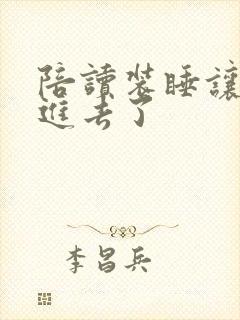 陪讀裝睡讓
進去了
李昌兵